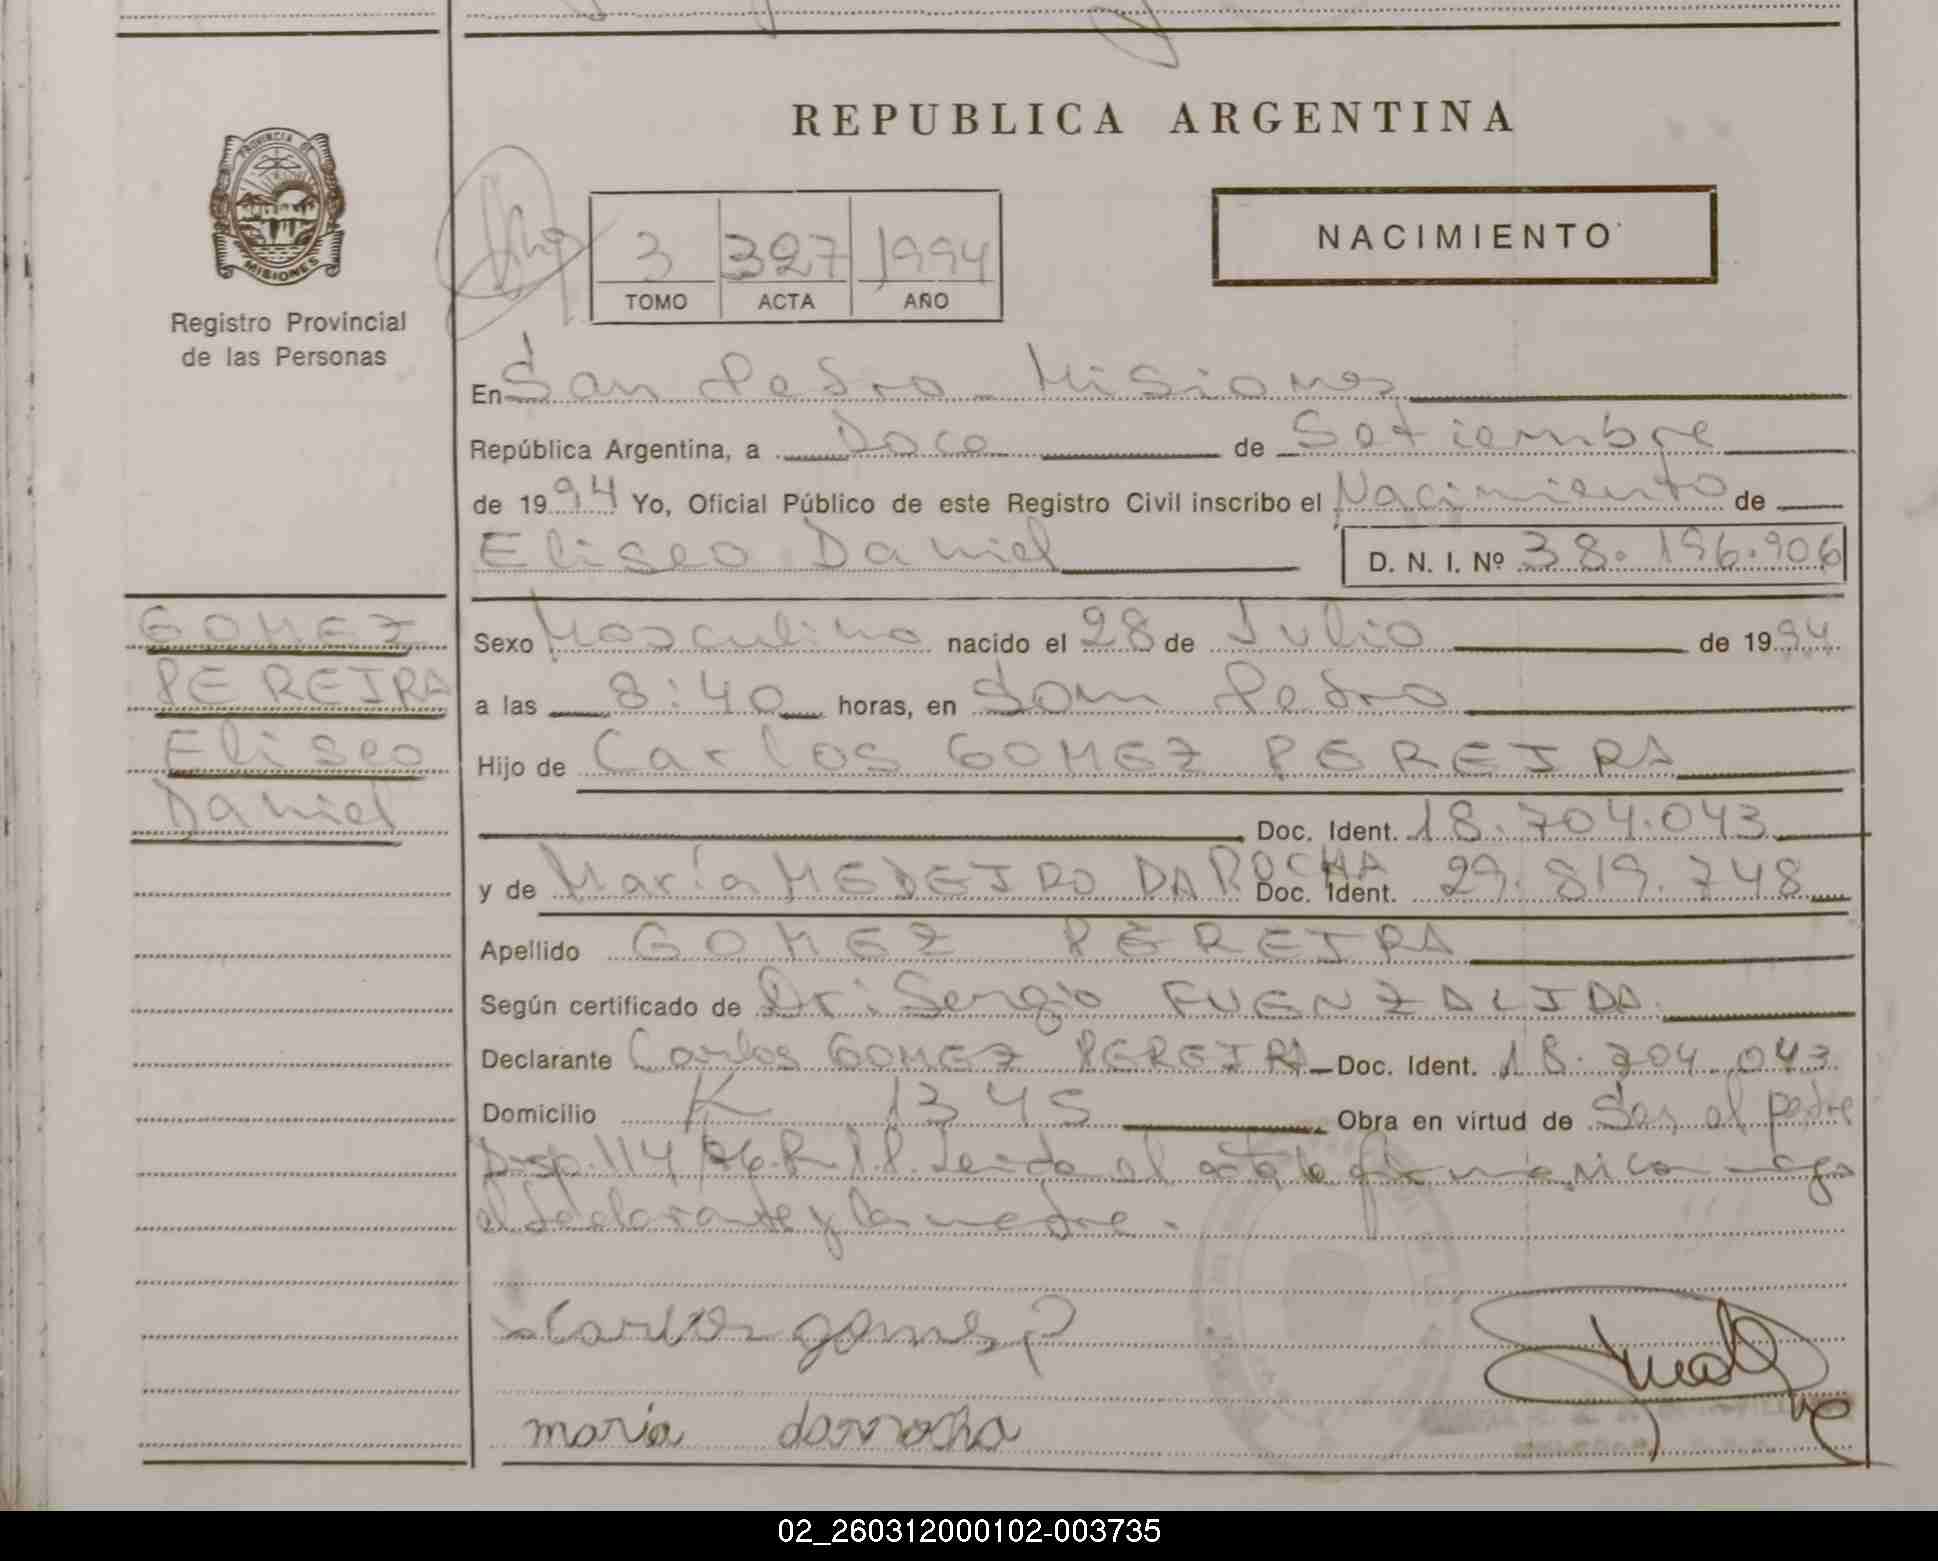 REPUBLICA ARGENTINA
PROVINCIA DE
MISIONES
Registro Provincial
de las Personas
3 327 1994
TOMO ACTA AÑO
NACIMIENTO
En San Pedro - Misiones
República Argentina, a Doce de Setiembre
de 1994 Yo, Oficial Público de este Registro Civil inscribo el Nacimiento de
Eliseo Daniel D. N. I. Nº 38.196.906
GOMEZ
PEREIRA
Eliseo
Daniel
Sexo Masculino nacido el 28 de Julio de 1994
a las 8:40 horas, en San Pedro
Hijo de Carlos GOMEZ PEREIRA
Doc. Ident. 18.704.043
y de María MEDEIRO DAROCHA Doc. Ident. 29.819.748
Apellido GOMEZ PEREIRA
Según certificado de Dr: Sergio FUENZALIDA
Declarante Carlos GOMEZ PEREIRA Doc. Ident. 18.704.043
Domicilio K 1345 Obra en virtud de Ser el padre
Disp. 114/86.R.P.P. Leída el acta la firman conmigo
el declarante y la madre.
Carlos gomes P
maria darrocha
02_260312000102-003735